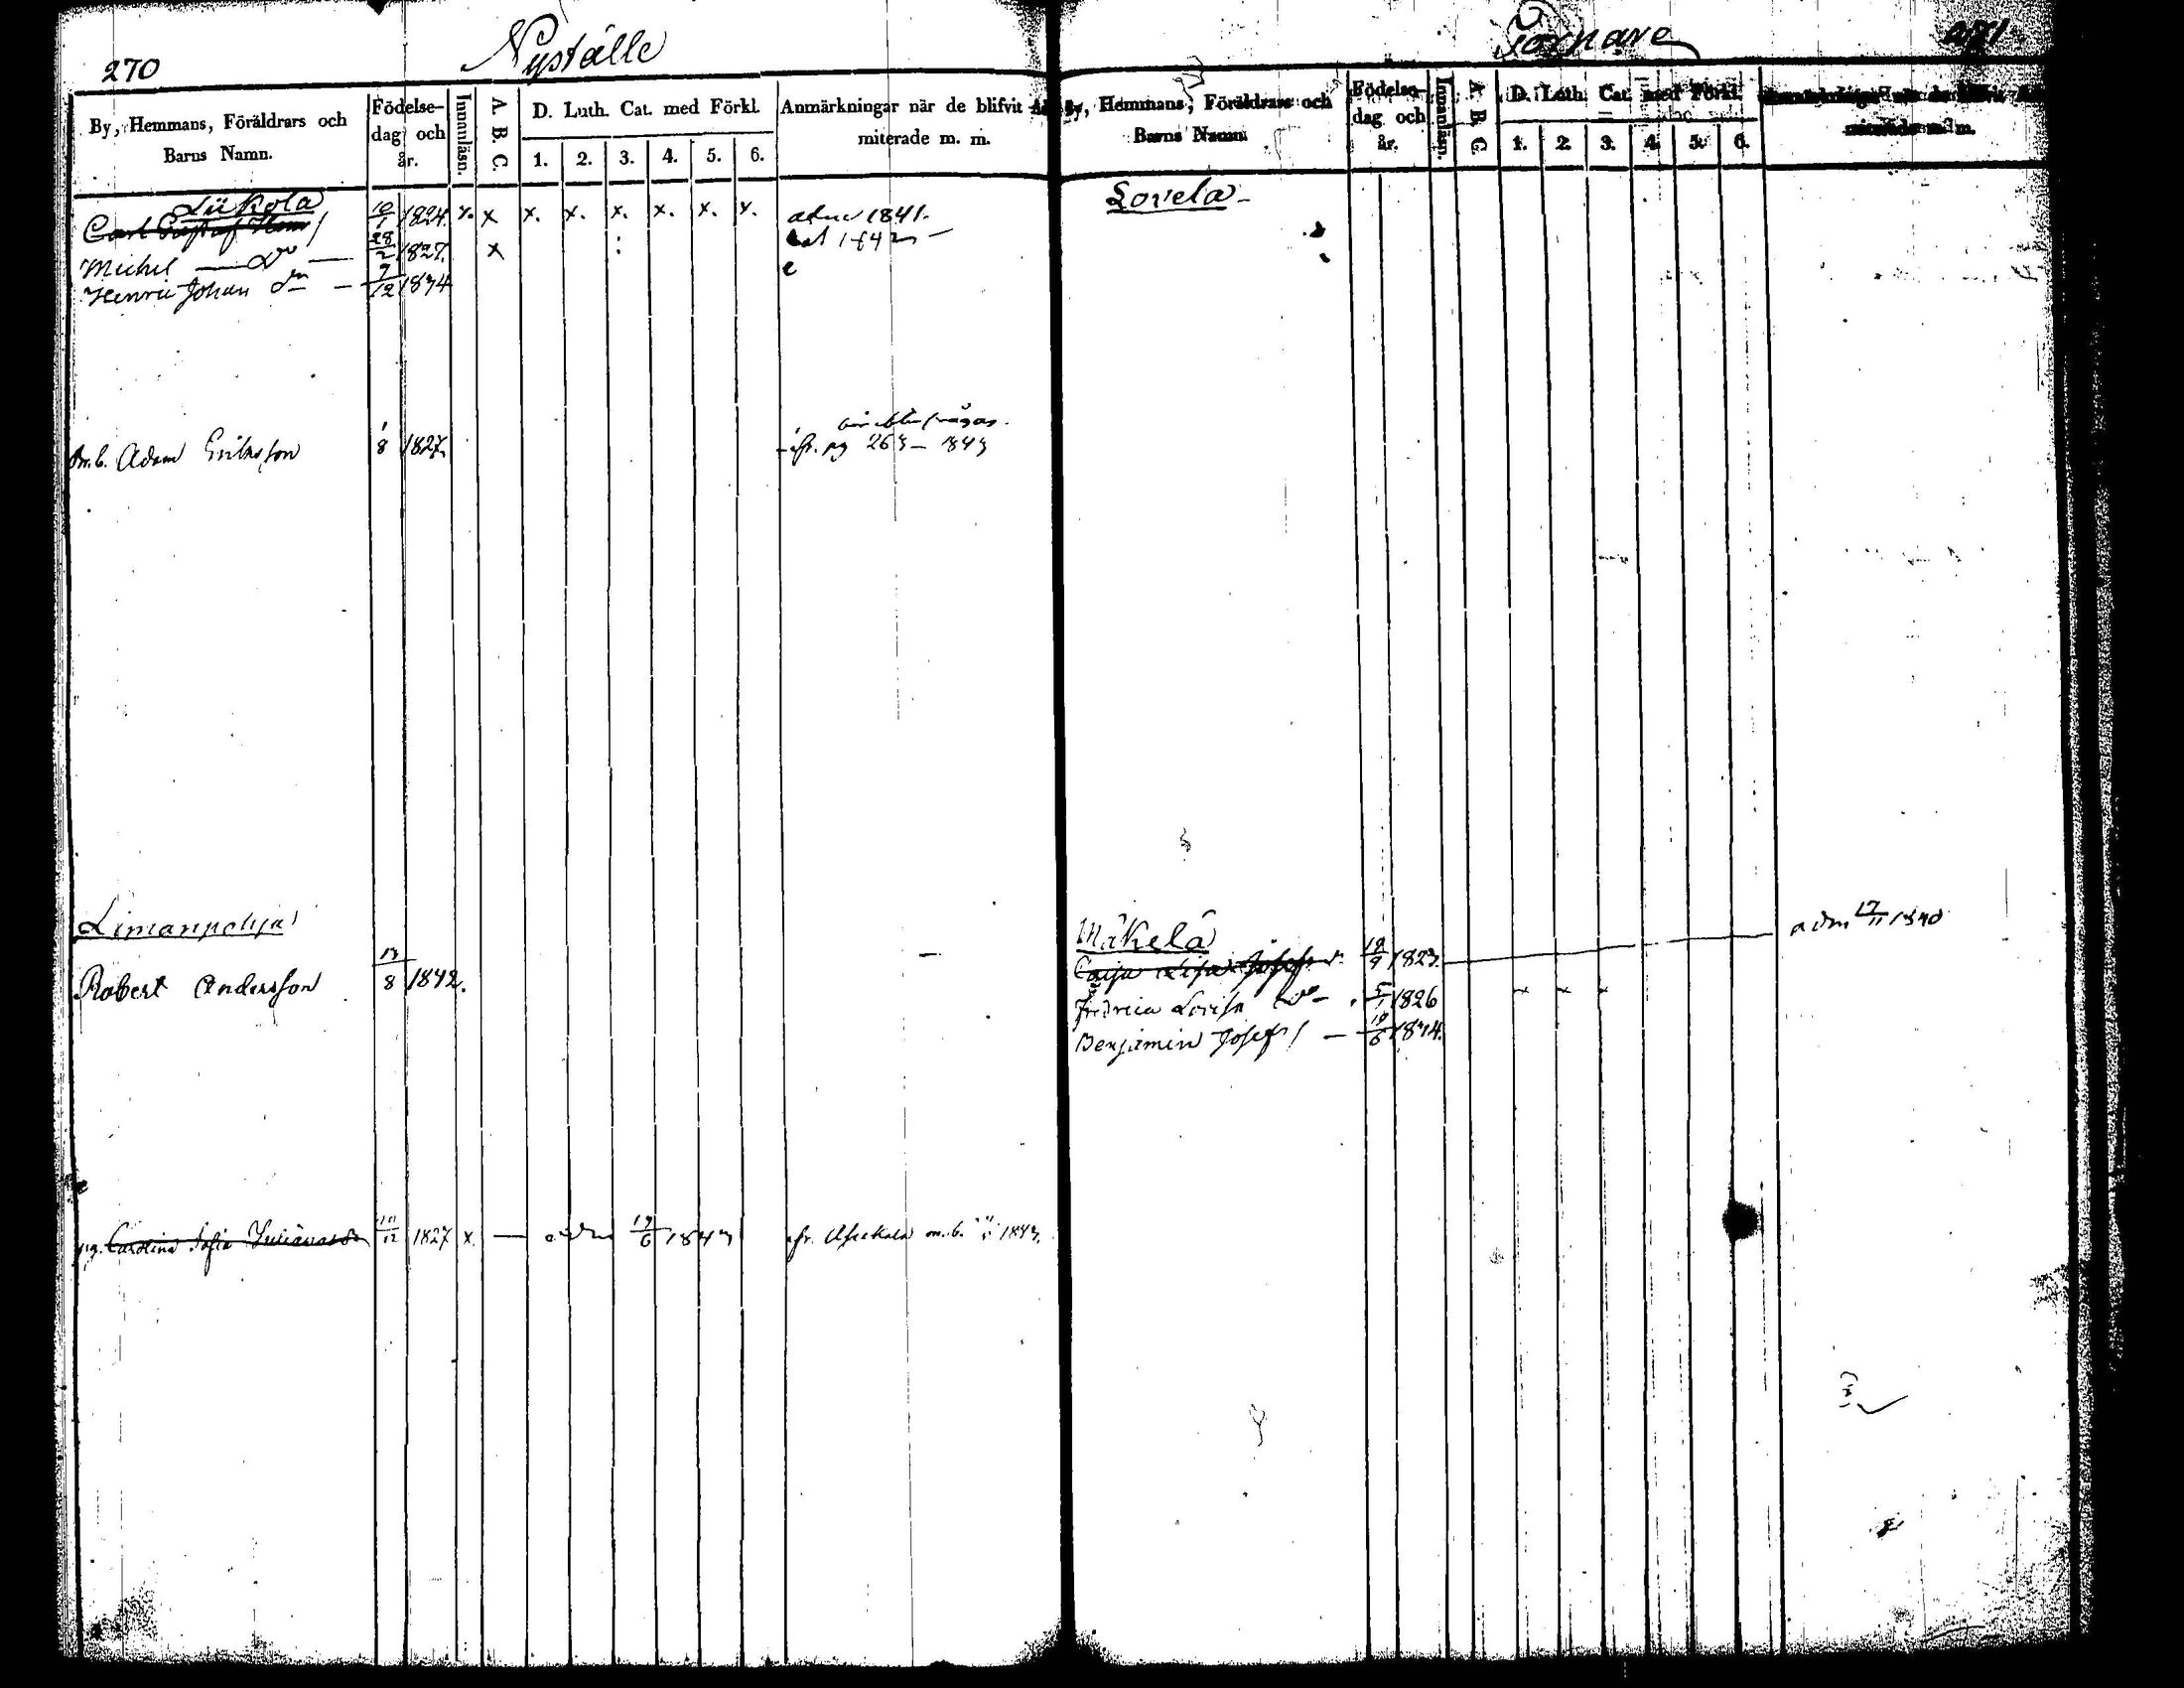 270
Nyställe
By, Hemmans, Föräldrars och Barns Namn.
Födelse-dag och år.
Innanläsn.
A. B. C.
D. Luth. Cat. med Förkl.
1. 2. 3. 4. 5. 6.
Anmärkningar när de blifvit
miterade m. m.
Liikola
Carl Gustaf 10/1 1824. x. x x. x. x. x. x. x. adm 1841.
Michel — Do — 28/2 1827. x 1842 —
Henric Johan dn — 7/12 1834
Adam Eriksson 1/8 1827. pg 263 — 1843
Limanpohja
Robert Andersson 13/8 1842.
Carolina Sofia 1827 x — adm 19/6 1843 m.b. 1843.
Tornare
271
By, Hemmans, Föräldrars och
Barns Namn.
Födelse-dag och år.
Innanläsn.
A. B. C.
D. Luth. Cat. med Förkl.
1. 2. 3. 4. 5. 6.
m. m.
Lovela —
Mäkelä adm 17/11 1840
Caisa Lisa Josefs d. 18/9 1823.
Fredrica Lovisa Do — 5/1 1826 x x x
Benjamin Josefs — 10/6 1834.